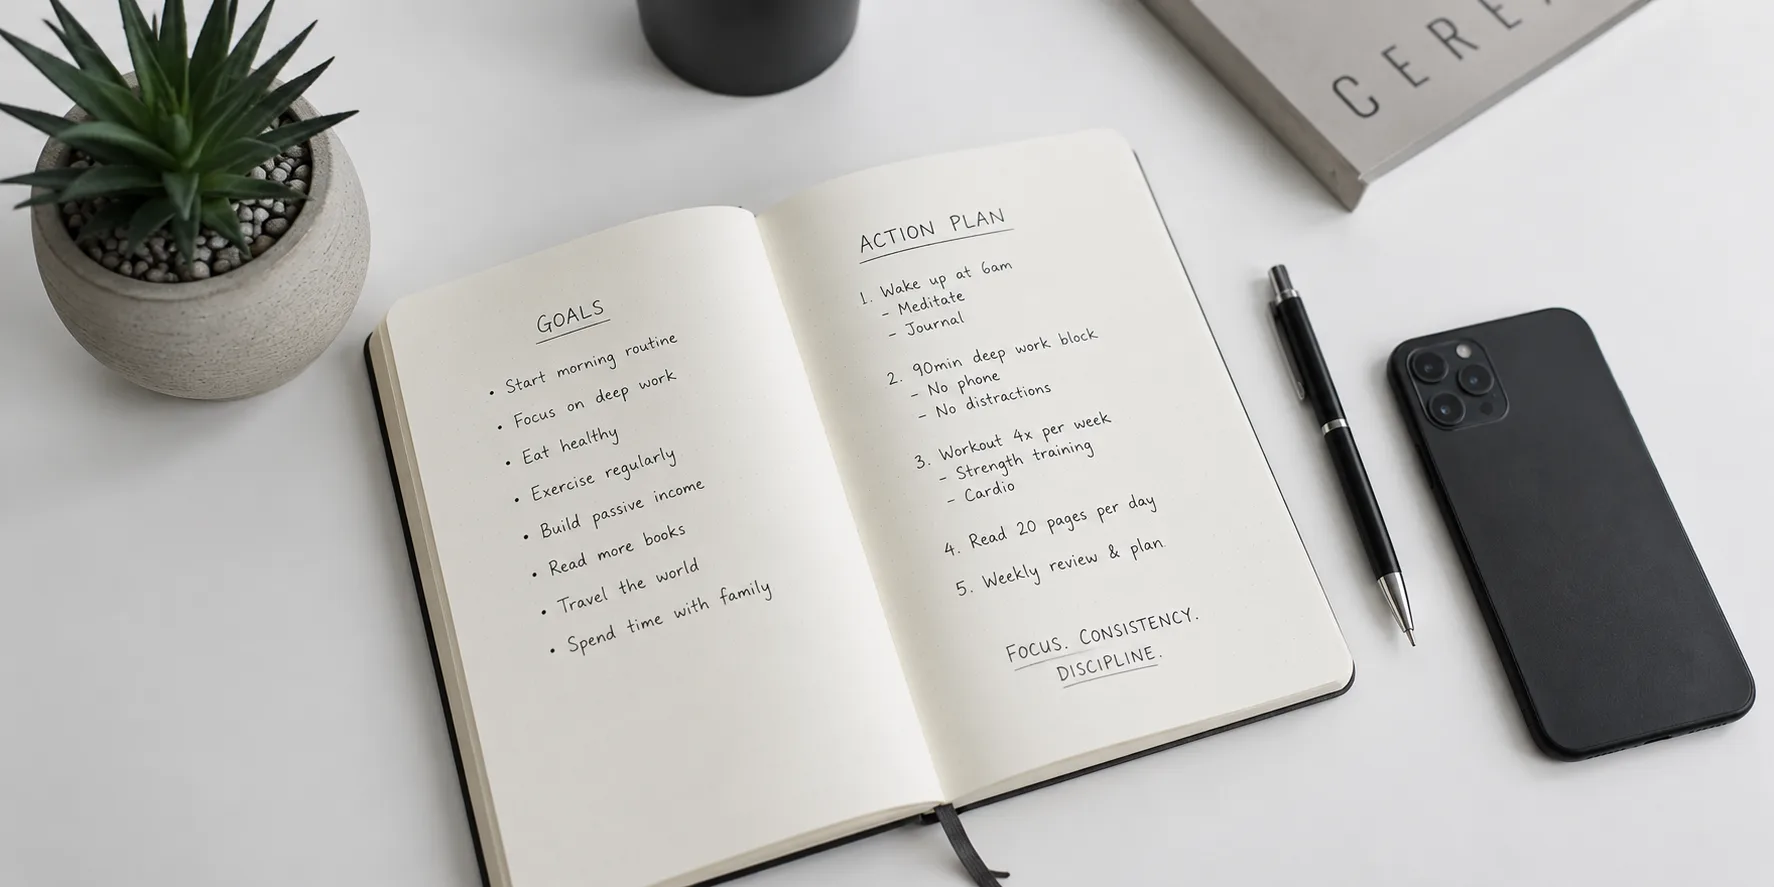 CEREA
GOALS
• Start morning routine
• Focus on deep work
• Eat healthy
• Exercise regularly
• Build passive income
• Read more books
• Travel the world
• Spend time with family
ACTION PLAN
1. Wake up at 6am
- Meditate
- Journal
2. 90min deep work block
- No phone
- No distractions
3. Workout 4x per week
- Strength training
- Cardio
4. Read 20 pages per day
5. Weekly review & plan
FOCUS. CONSISTENCY.
DISCIPLINE.